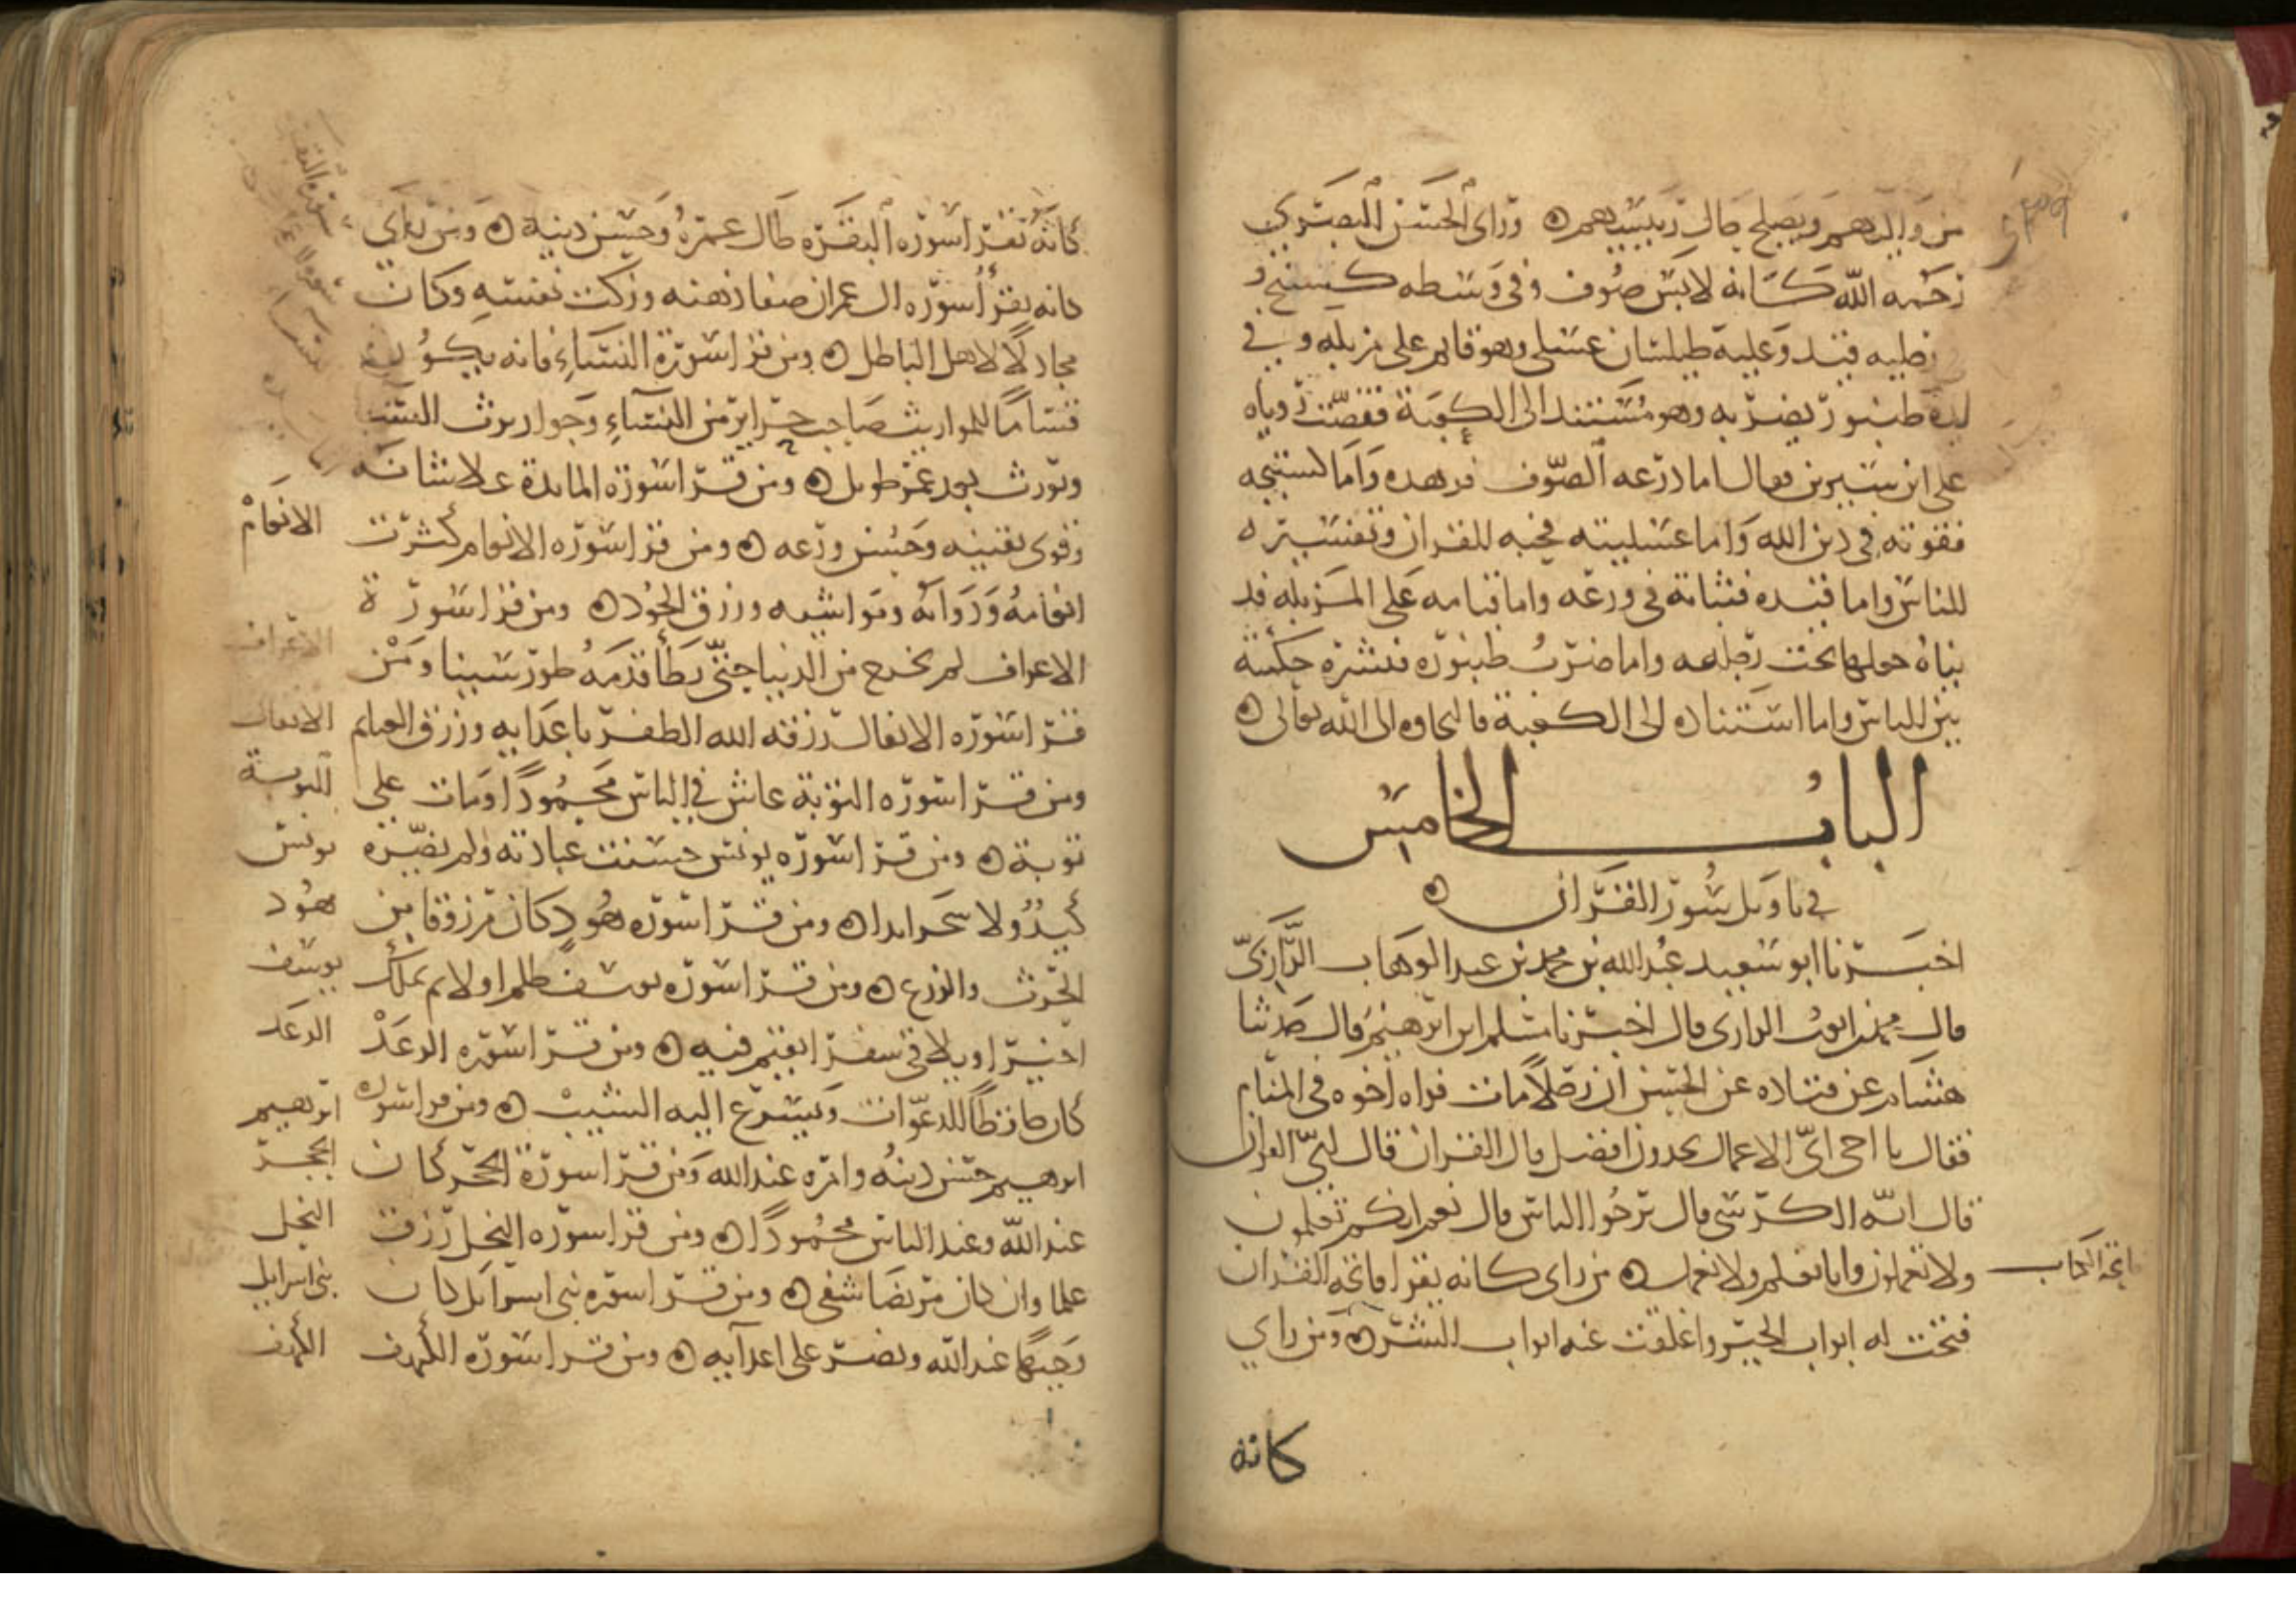 من والديهم ويصلح حال ربيبهم ورأى الحسن البصري
رحمه الله كانه لابس صوف وفي وسطه كستيج و
رجليه قيد وعليه طيلسان عسلي وهو قايم على مزبلة وفي
يده طنبور يضرب به وهو مستند الى الكعبة فقصت روياه
على ابن سيرين فقال اما درعه الصوف فزهده واما كستيجه
فقوته في دين الله واما عسليته فحبه للقران وتفسيره
للناس واما قيده فثباته في ورعه واما قيامه على المزبله فد
نياه جعلها تحت رجليه واما ضرب طنبوره فنشره حكمته
بين الناس واما استناده الى الكعبة فالتجاوه الى الله تعالى
الباب الخامس
في تاويل سور القران
اخبرنا ابو سعيد عبد الله بن محمد بن عبد الوهاب الرازي
قال محمد بن ايوب الرازي قال اخبرنا مسلم ابن ابرهيم قال حدثنا
هشام عن قتاده عن الحسن ان رجلا مات فراه اخوه في المنام
فقال يا اخي اي الاعمال تجدون افضل قال القران قال اي القران
قال اية الكرسي قال ترجو الناس قال نعم انكم تعلمون
ولا تعملون وانا نعلم ولا نعمل من راى كانه يقرا فاتحة القران
فاتحة الكتاب
فتحت له ابواب الخير واغلقت عنه ابواب الشر ومن راي
كانه
كانه يقرا سورة البقره طال عمره وحسن دينه ومن راي
كانه يقرأ سوره ال عمران صفا ذهنه وزكت نفسه وكان
مجادلا لاهل الباطل ومن قرا سورة النساء فانه يكون
قساما للمواريث صاحب حراير من النساء وجوار يرث
ويورث بعد عمر طويل ومن قرا سورة المايدة علا شانه
وقوى يقينه وحسن ورعه ومن قرا سوره الانعام كثرت
الانعام
انعامه ودوابه ومواشيه ورزق الجود ومن قرا سورة
الاعراف لم يخرج من الدنيا حتى يطأ قدمه طور سينا ومن
الاعراف
قرا سوره الانفال رزقه الله الظفر باعدايه ورزق الغنايم
الانفال
ومن قرا سوره التوبة عاش في الناس محمودا ومات على
التوبة
توبة ومن قرا سوره يونس حسنت عبادته ولم يضره
يونس
كيد ولا سحر ابدا ومن قرا سوره هود كان مرزوقا من
هود
الحرث والزرع ومن قرا سوره يوسف ظلم اولا ثم يملك
يوسف
اخيرا ويلاقي سفرا يقيم فيه ومن قرا سوره الرعد
الرعد
كان حافظا للدعوات ويسرع اليه الشيب ومن قرا سورة
ابرهيم
ابرهيم حسن دينه وامره عند الله ومن قرا سورة الحجر كان
الحجر
عند الله وعند الناس محمودا ومن قرا سوره النحل رزق
النحل
علما وان كان مريضا شفي ومن قرا سوره بني اسرايل كان
بني اسرايل
وجيها عند الله ونصر على اعدايه ومن قرا سوره الكهف
الكهف